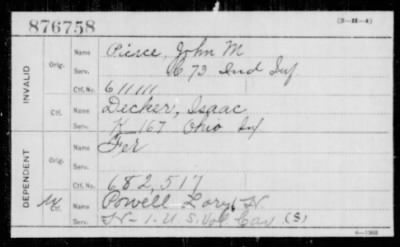 876758
(3-22-4)
INVALID
Orig.
Name Pierce, John M
Serv. K 73 Ind Inf
Ctf. No. 611111
Ctf.
Name Decker, Isaac
Serv. K 167 Ohio Inf
DEPENDENT
Orig.
Name Fer
Serv.
Ctf. No. 682,517
Ctf.
Name Powell Lory N
Serv. N-1-U.S. Vol Cav (S)